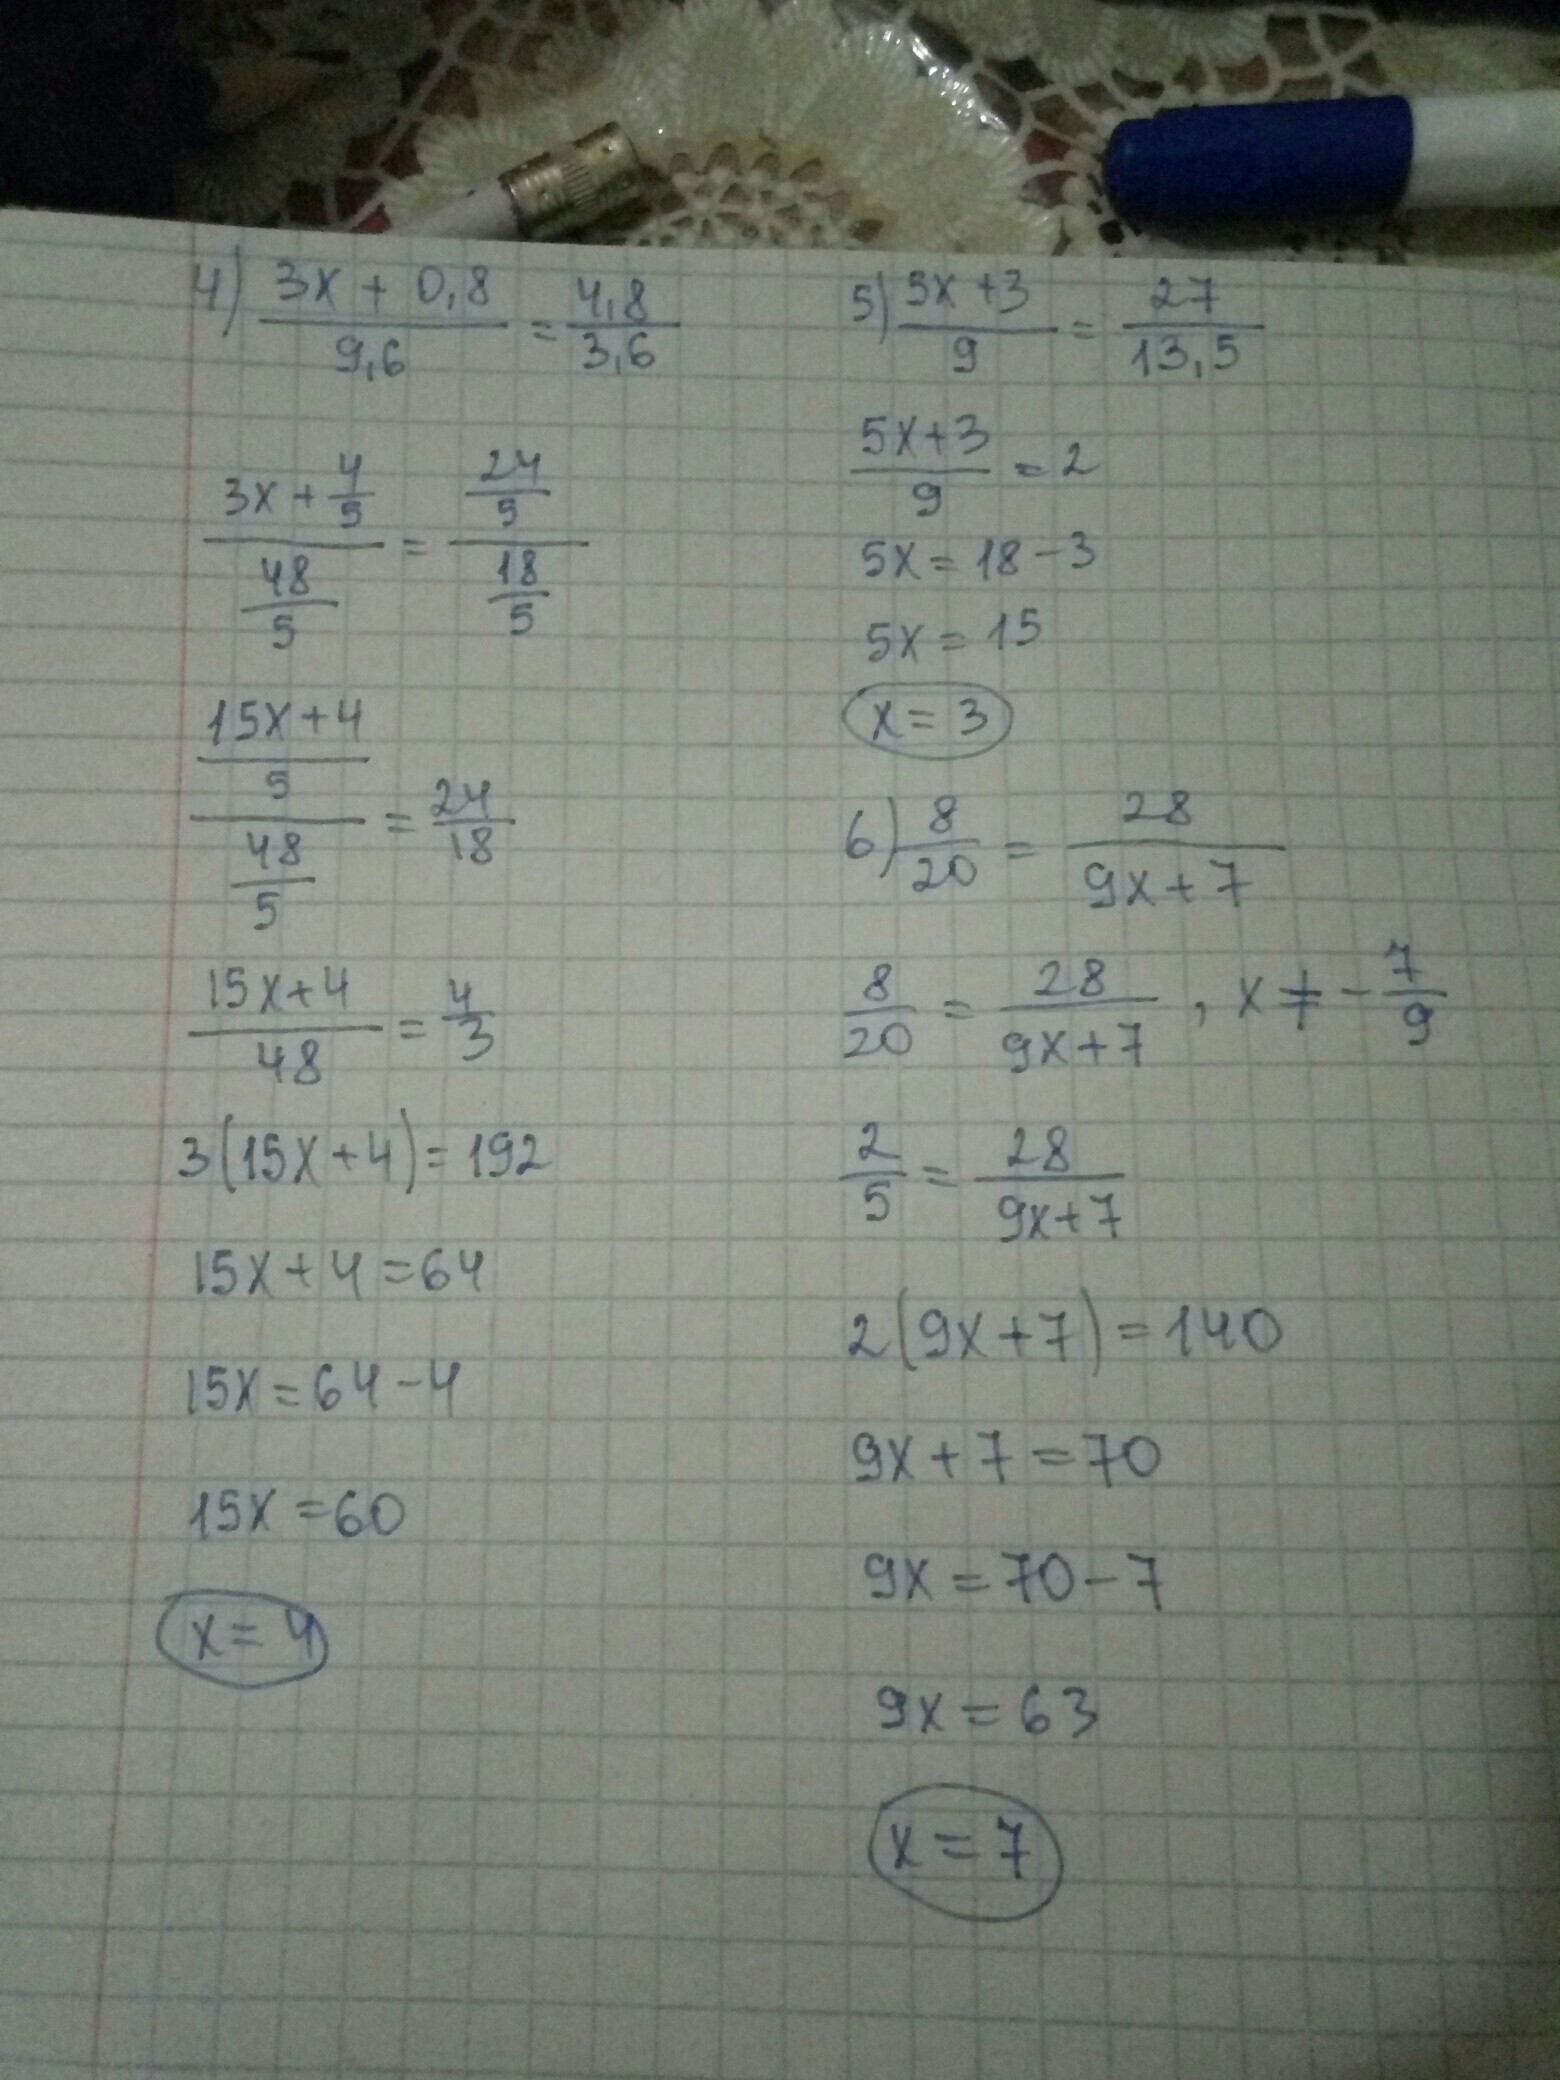 4) (3x + 0,8)/9,6 = 4,8/3,6
(3x + 4/5)/(48/5) = (24/5)/(18/5)
((15x + 4)/5)/(48/5) = 24/18
(15x + 4)/48 = 4/3
3(15x + 4) = 192
15x + 4 = 64
15x = 64 - 4
15x = 60
x = 4
5) (5x + 3)/9 = 27/13,5
(5x + 3)/9 = 2
5x = 18 - 3
5x = 15
x = 3
6) 8/20 = 28/(9x + 7)
8/20 = 28/(9x + 7) , x ≠ - 7/9
2/5 = 28/(9x + 7)
2(9x + 7) = 140
9x + 7 = 70
9x = 70 - 7
9x = 63
x = 7